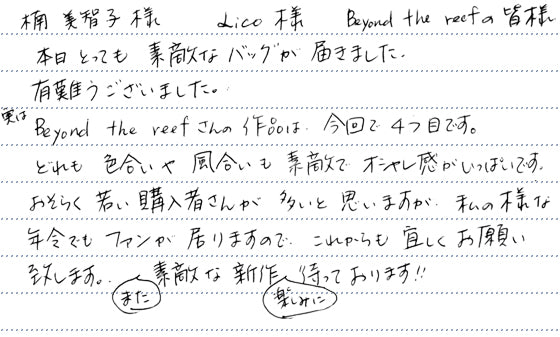 楠 美智子 様　Lico 様　Beyond the reefの 皆様
本日 とっても 素敵な バッグが 届きました.
有難うございました。
実は Beyond the reefさんの 作品は、今回で 4つ目です。
どれも 色合いや 風合いも 素敵で オシャレ感がいっぱいです。
おそらく 若い 購入者さんが 多いと 思いますが、私の様な
年令でも ファンが 居りますので、これからも 宜しく お願い
致します。また 素敵な 新作、楽しみに 待っております!!